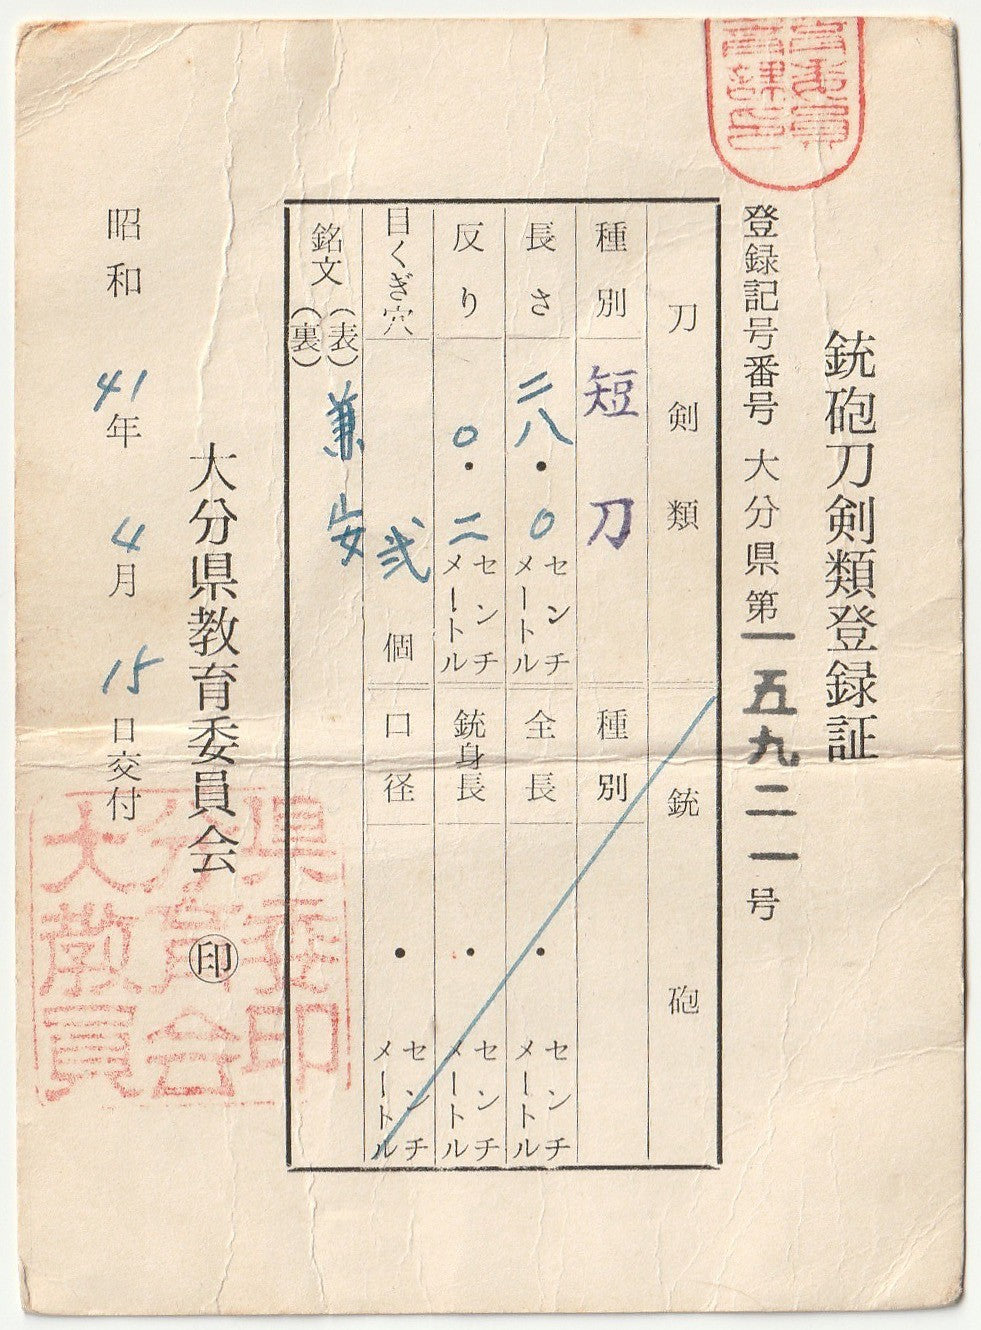 銃砲刀剣類登録証
登録記号番号 大分県第一五九二一号
刀剣類
銃砲
種別 短刀
種別
長さ 二八・〇 センチメートル
全長 ・ センチメートル
反り 〇・二 センチメートル
銃身長 ・ センチメートル
目くぎ穴 弐 個
口径 ・ センチメートル
銘文 (表) 兼安
(裏)
大分県教育委員会 ㊞
昭和41年4月15日交付
大分県
教育委
員会印